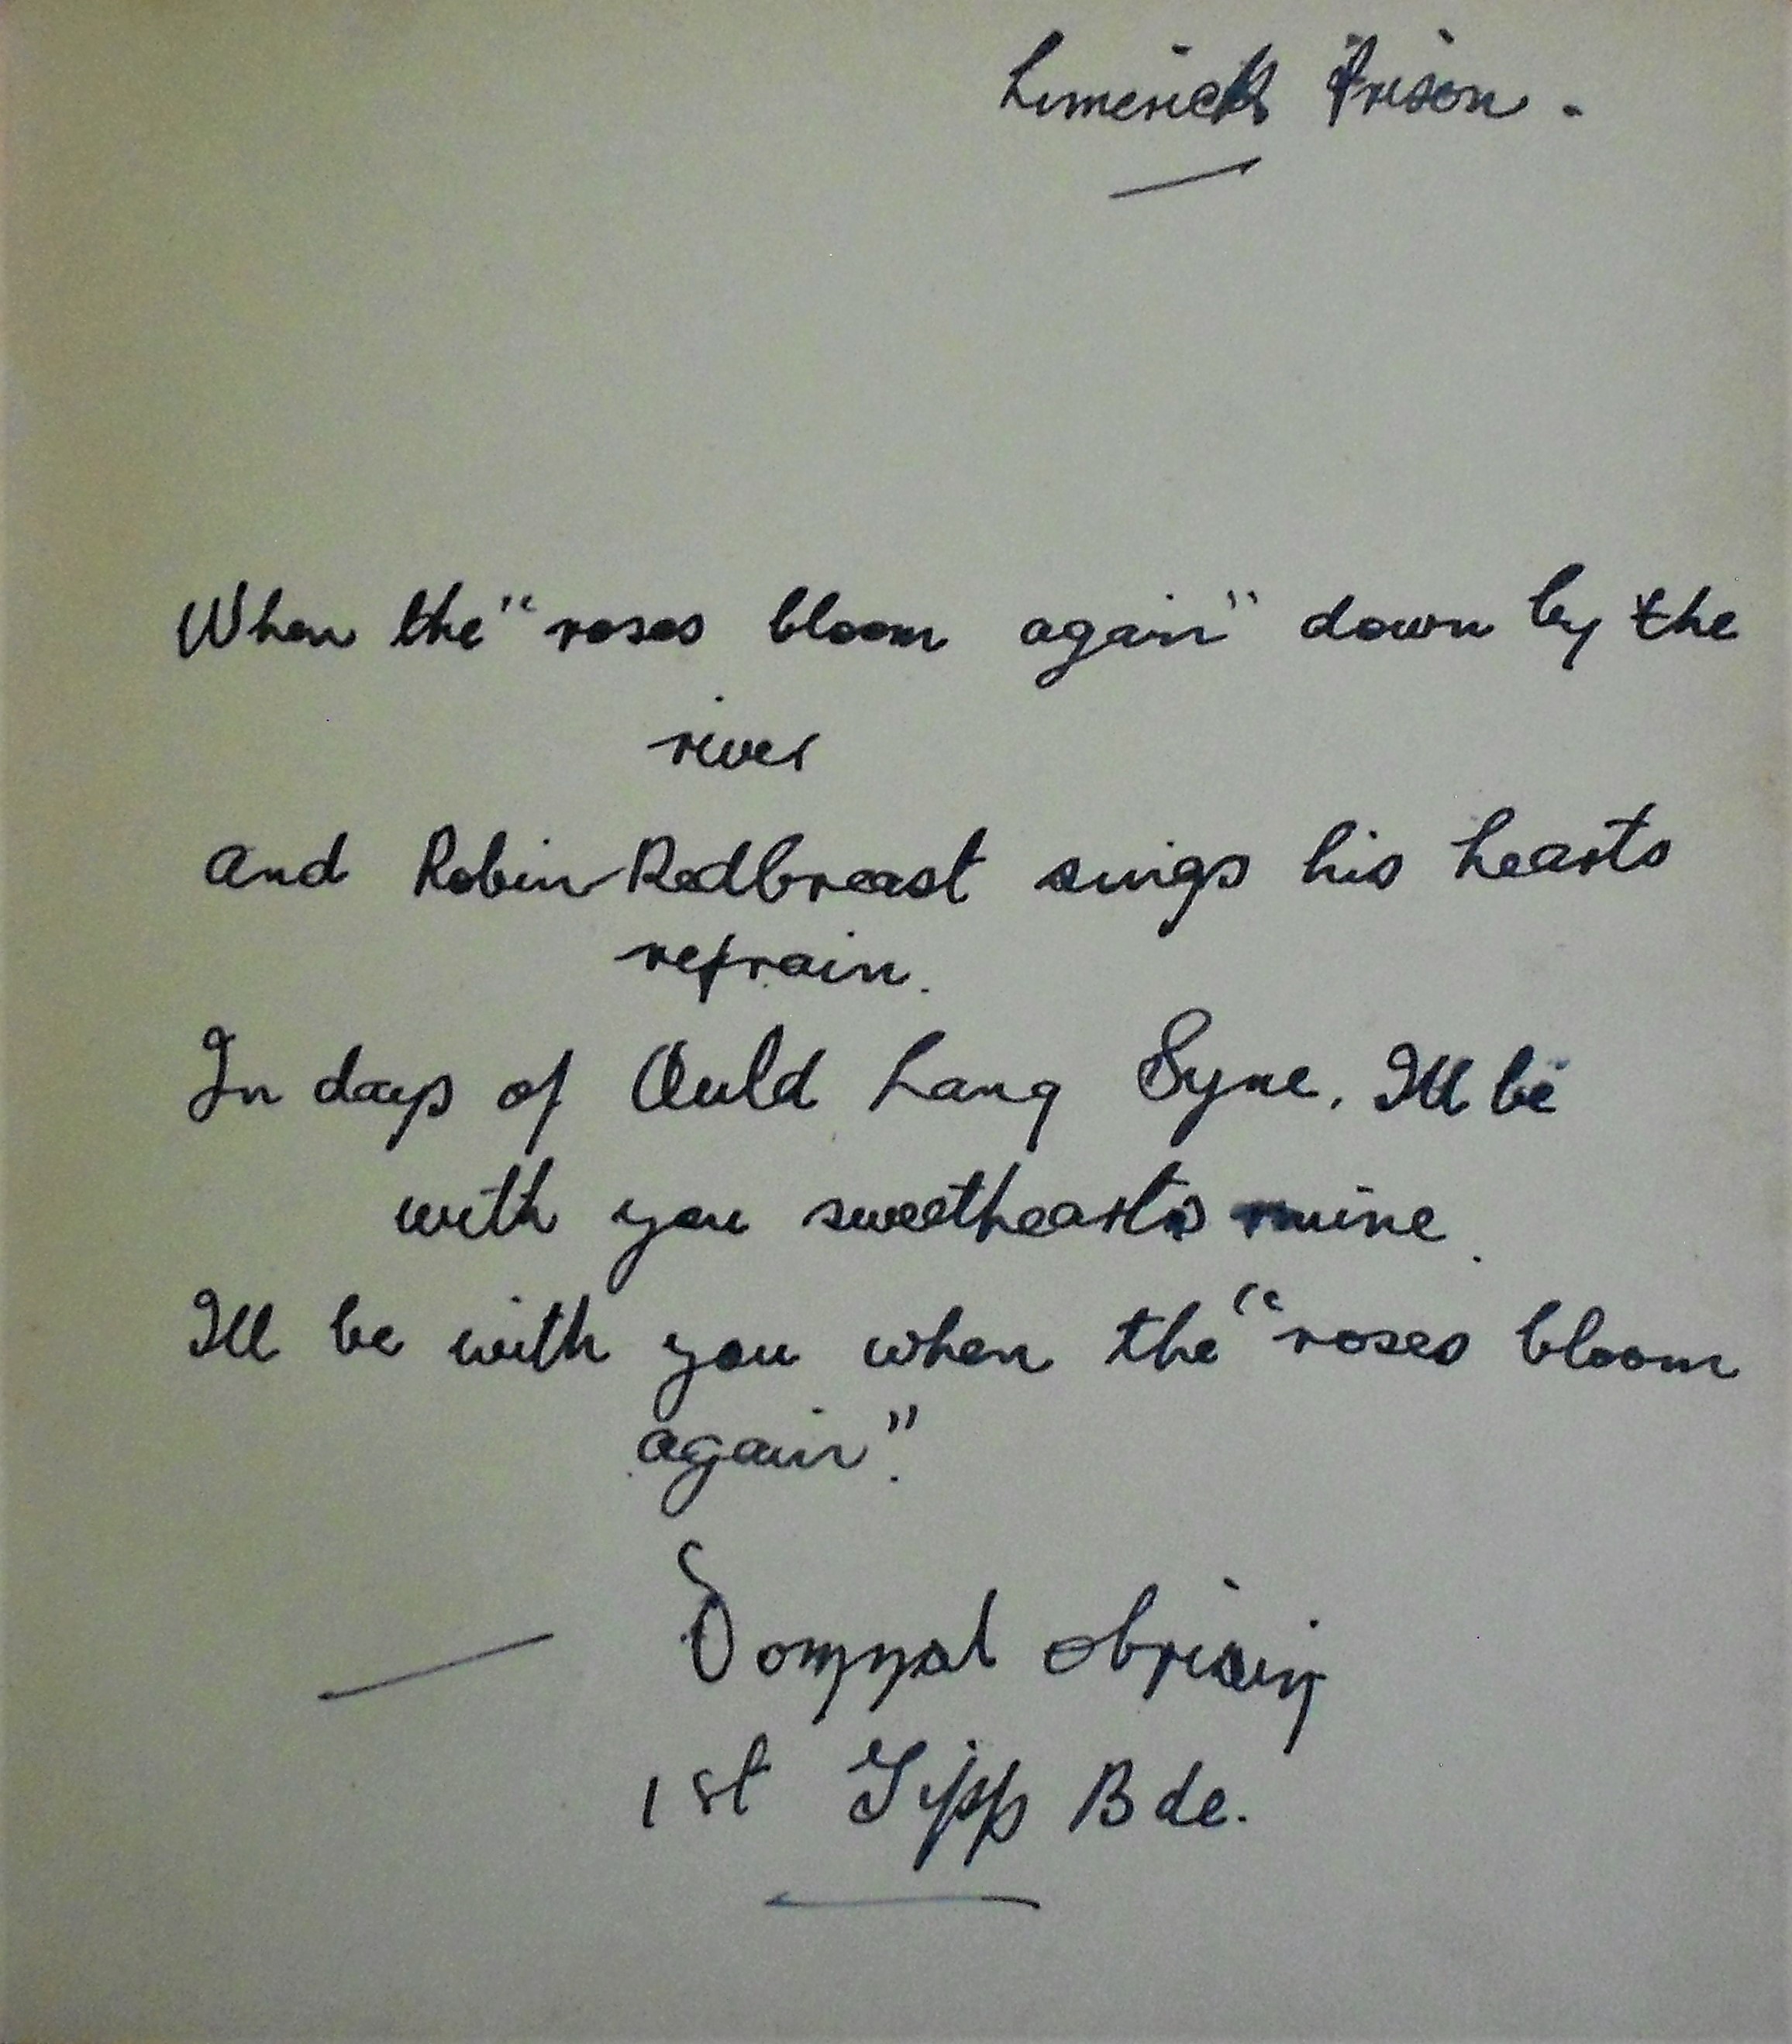 Limerick Prison.
When the "roses bloom again" down by the
river
and Robin Redbreast sings his hearts
refrain.
In days of Auld Lang Syne. Ill be
with you sweethearts mine.
Ill be with you when the "roses bloom
again".
Domnal Obriain
1st Tipp Bde.